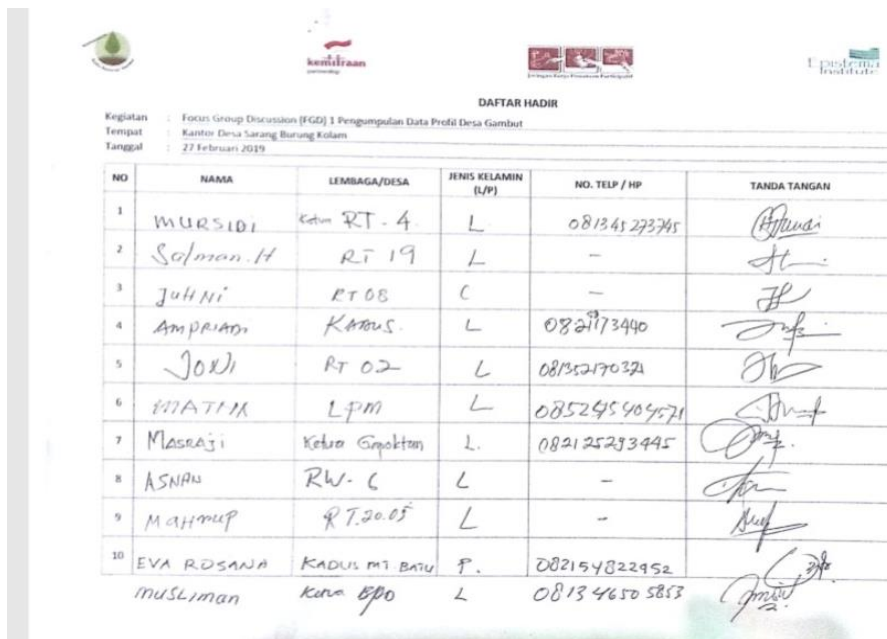 kemitraan
partnership
Jaringan Kerja Pemetaan Partisipatif
Epistema
Institute
DAFTAR HADIR
Kegiatan : Focus Group Discussion (FGD) 1 Pengumpulan Data Profil Desa Gambut
Tempat : Kantor Desa Sarang Burung Kolam
Tanggal : 27 Februari 2019
NO NAMA LEMBAGA/DESA JENIS KELAMIN (L/P) NO. TELP / HP TANDA TANGAN
1 MURSIDI Ketua RT - 4. L 081345273745
2 Salman.H RT 19 L -
3 JUHNi RT 08 L -
4 AMPRIADI KADUS. L
5 JONI RT 02 L
6 LPM L 085245404571
7 MASRAJi Ketua Gapoktan L. 082125293445
8 ASNAN RW- 6 L -
9 MAHMUP RT.20.05 L -
10 EVA ROSANA KADUS MT. BATU P. 082154822952
MUSLiman Ketua L 081346505853